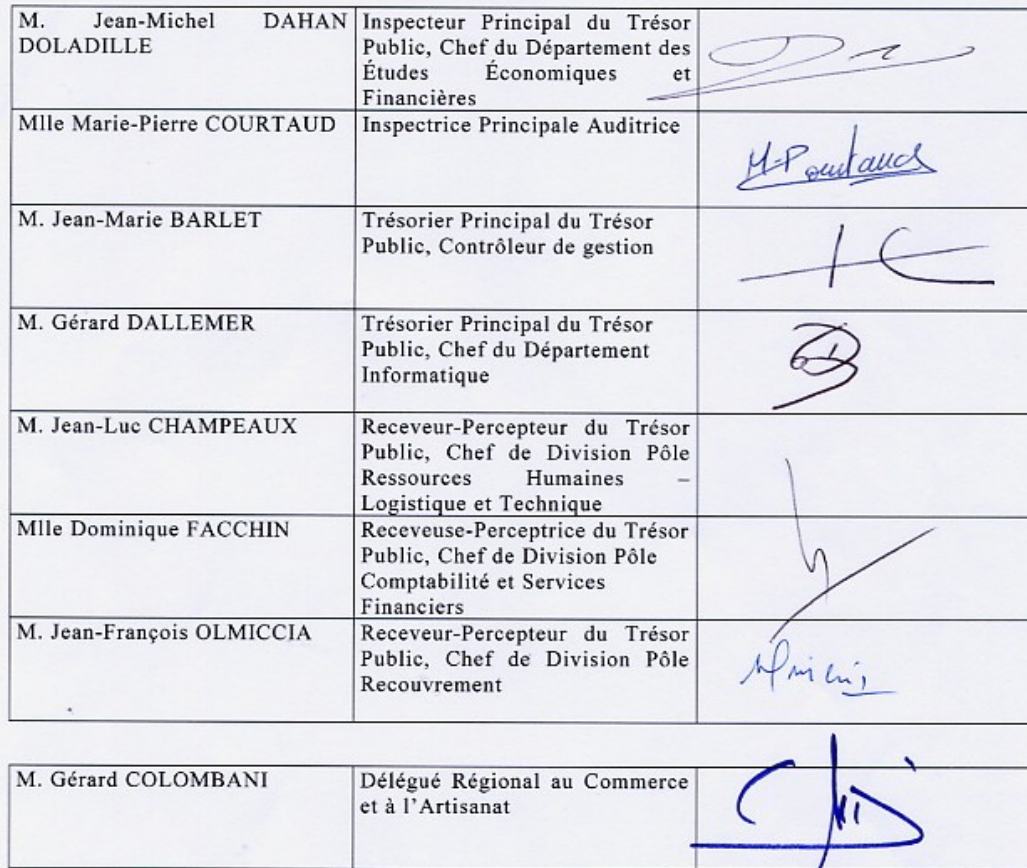 M. Jean-Michel DAHAN
DOLADILLE
Inspecteur Principal du Trésor
Public, Chef du Département des
Études Économiques et
Financières
Mlle Marie-Pierre COURTAUD
Inspectrice Principale Auditrice
M-P Courtaud
M. Jean-Marie BARLET
Trésorier Principal du Trésor
Public, Contrôleur de gestion
M. Gérard DALLEMER
Trésorier Principal du Trésor
Public, Chef du Département
Informatique
M. Jean-Luc CHAMPEAUX
Receveur-Percepteur du Trésor
Public, Chef de Division Pôle
Ressources Humaines –
Logistique et Technique
Mlle Dominique FACCHIN
Receveuse-Perceptrice du Trésor
Public, Chef de Division Pôle
Comptabilité et Services
Financiers
M. Jean-François OLMICCIA
Receveur-Percepteur du Trésor
Public, Chef de Division Pôle
Recouvrement
M. Gérard COLOMBANI
Délégué Régional au Commerce
et à l'Artisanat